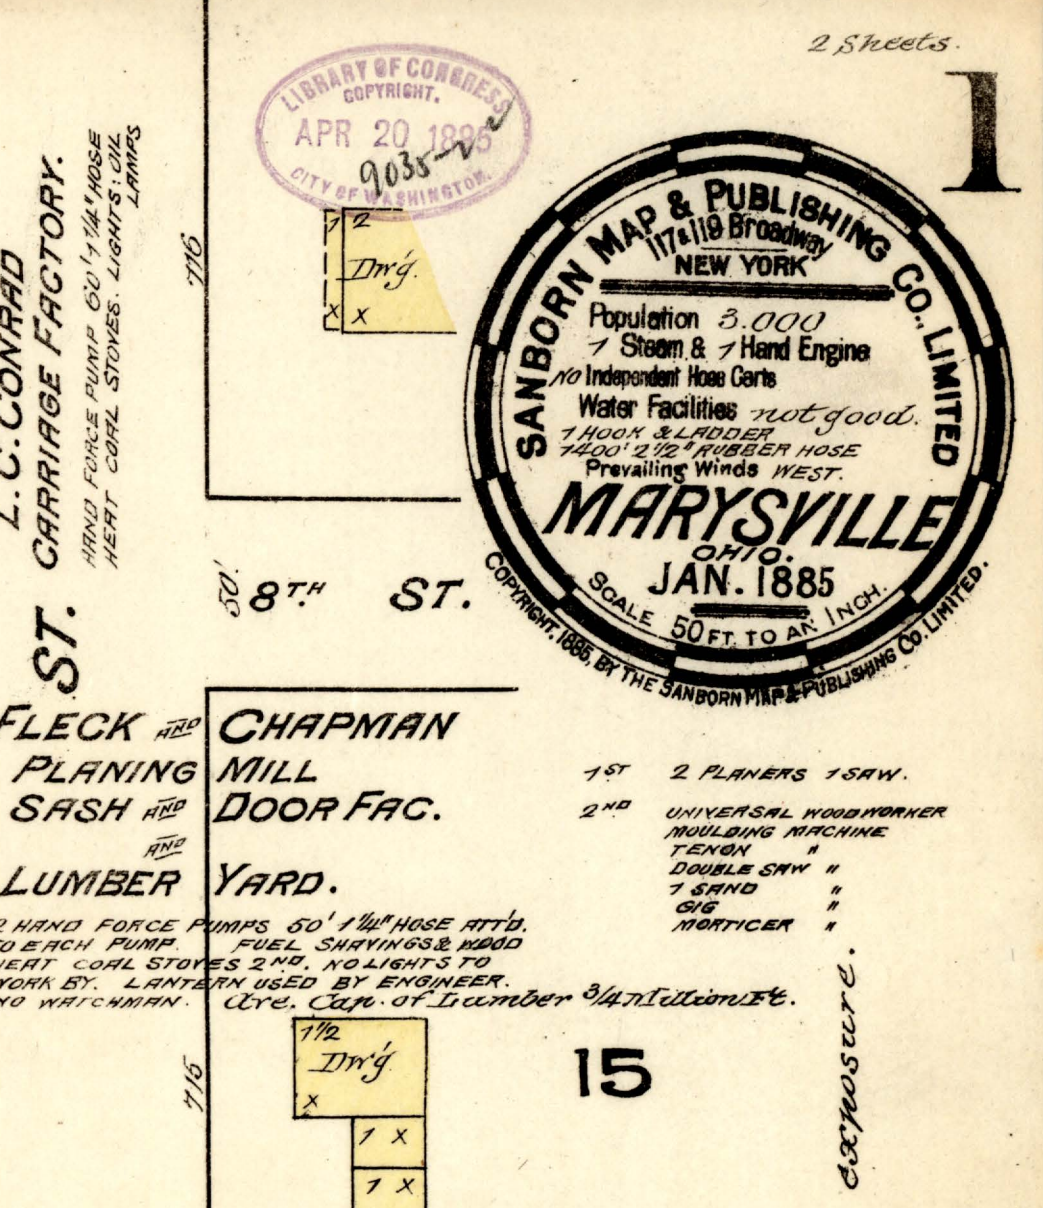 2 Sheets.
1
LIBRARY OF CONGRESS
COPYRIGHT.
APR 20 1885
CITY OF WASHINGTON.
L.C. CONRAD
CARRIAGE FACTORY.
HAND FORCE PUMP 60' 1 1/4" HOSE
HEAT COAL STOVES. LIGHTS: OIL
LAMPS
716
1 2
Dw'g.
X X
SANBORN MAP & PUBLISHING CO., LIMITED
117 & 119 Broadway
NEW YORK
Population 3.000
1 Steam & 1 Hand Engine
No Independent Hose Carts
Water Facilities not good.
1 HOOK & LADDER
1400' 2 1/2" RUBBER HOSE
Prevailing Winds WEST.
MARYSVILLE
OHIO.
JAN. 1885
SCALE 50 FT. TO AN INCH.
COPYRIGHT, 1885, BY THE SANBORN MAP & PUBLISHING CO. LIMITED.
50'.
8TH. ST.
ST.
FLECK AND CHAPMAN
PLANING MILL
SASH AND DOOR FAC.
AND
LUMBER YARD.
2 HAND FORCE PUMPS 50' 1 1/4" HOSE ATT'D.
TO EACH PUMP. FUEL SHAVINGS & WOOD
HEAT COAL STOVES 2ND. NO LIGHTS TO
WORK BY. LANTERN USED BY ENGINEER.
NO WATCHMAN. Ave. Cap. of Lumber 3/4 Million Ft.
1ST 2 PLANERS 1 SAW.
2ND UNIVERSAL WOODWORKER
MOULDING MACHINE
TENON "
DOUBLE SAW "
1 SAND "
GIG "
MORTICER "
exposure.
715
1 1/2
Dw'g
X
1 X
1 X
15